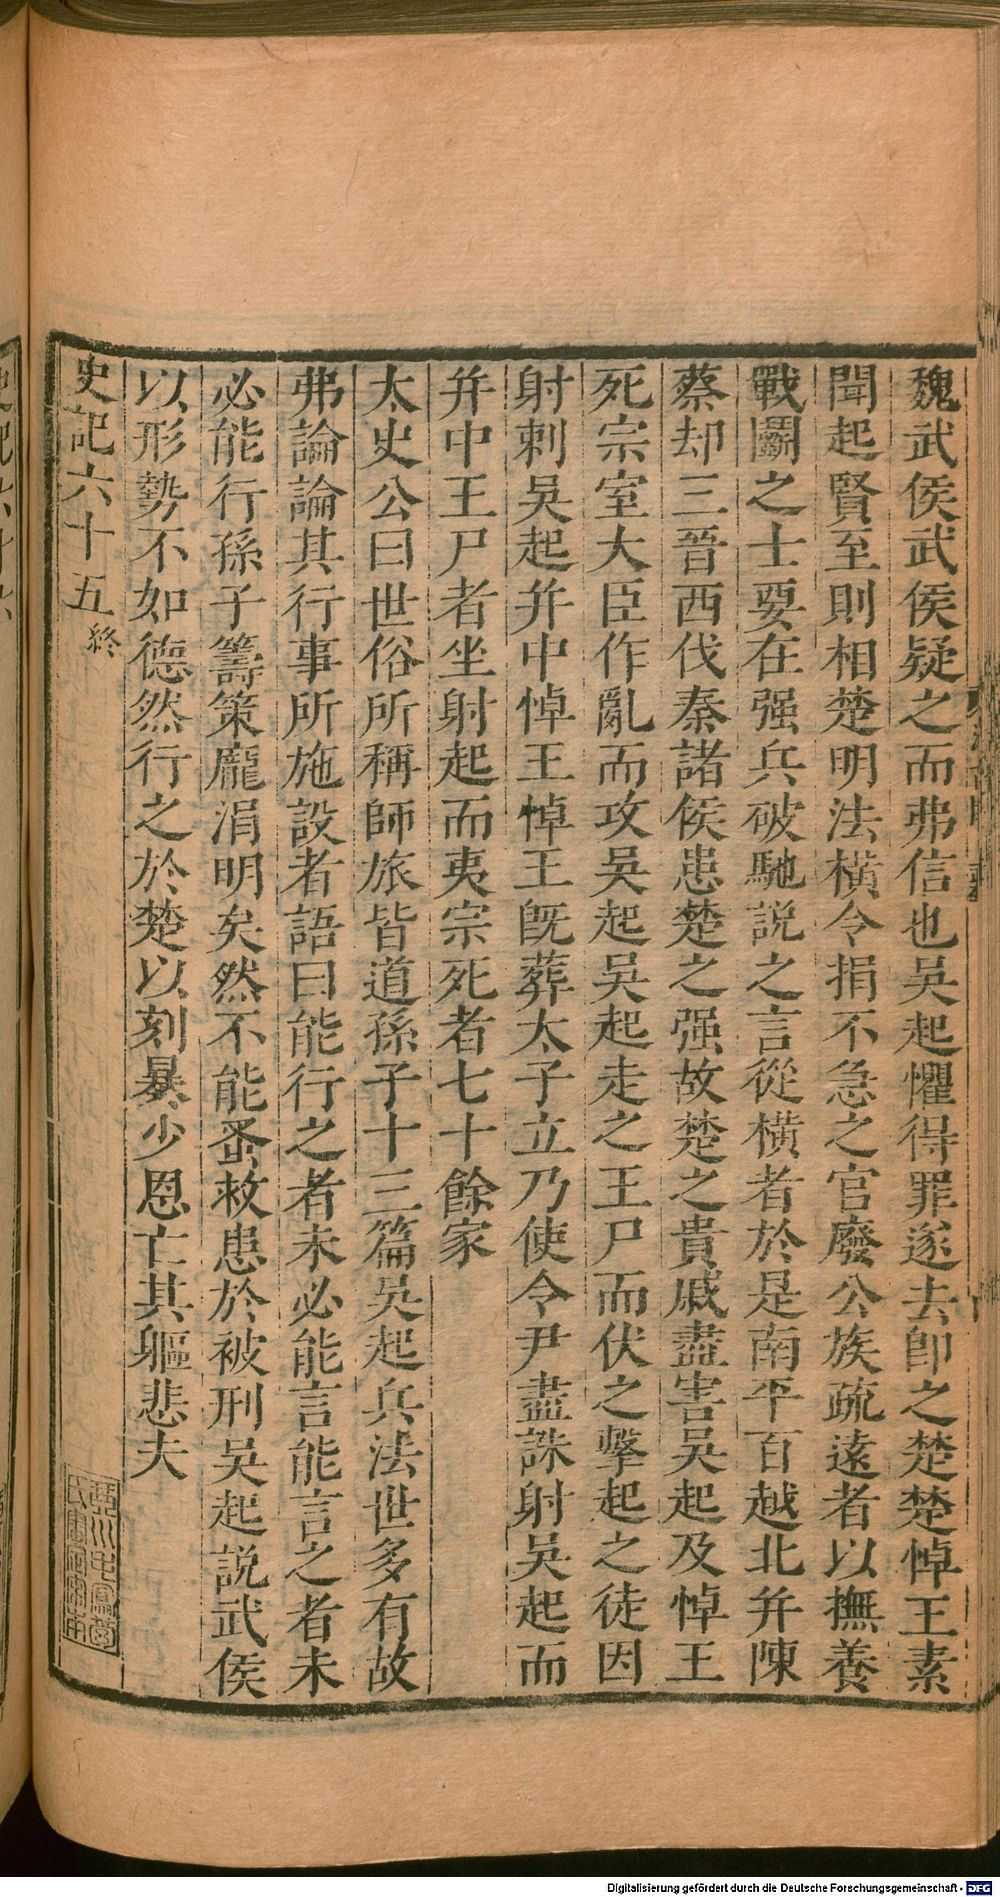 魏武侯武侯疑之而弗信也吳起懼得罪遂去卽之楚楚悼王素
聞起賢至則相楚明法橫令捐不急之官廢公族疏遠者以撫養
戰鬭之士要在强兵破馳說之言從橫者於是南平百越北幷陳
蔡却三晉西伐秦諸侯患楚之强故楚之貴戚盡害吳起及悼王
死宗室大臣作亂而攻吳起吳起走之王尸而伏之擊起之徒因
射刺吳起幷中悼王悼王旣葬太子立乃使令尹盡誅射吳起而
幷中王尸者坐射起而夷宗死者七十餘家
太史公曰世俗所稱師旅皆道孫子十三篇吳起兵法世多有故
弗論論其行事所施設者語曰能行之者未必能言能言之者未
必能行孫子籌策龐涓明矣然不能蚤救患於被刑吳起說武侯
以形勢不如德然行之於楚以刻暴少恩亡其軀悲夫
史記六十五 終
Digitalisierung gefördert durch die Deutsche Forschungsgemeinschaft - DFG